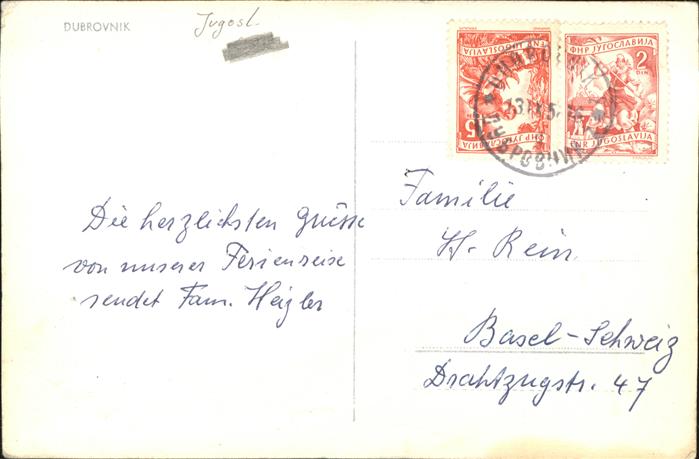 DUBROVNIK
Jugosl.
ФНР ЈУГОСЛАВИЈА
15
FNR JUGOSLAVIJA
ФНР ЈУГОСЛАВИЈА
2
DIN
FNR JUGOSLAVIJA
ДУБРОВНИК
Die herzlichsten Grüsse
von unserer Ferienreise
sendet Fam. Heigler
Familie
H. Rein
Basel-Schweiz
Drahtzugstr. 47